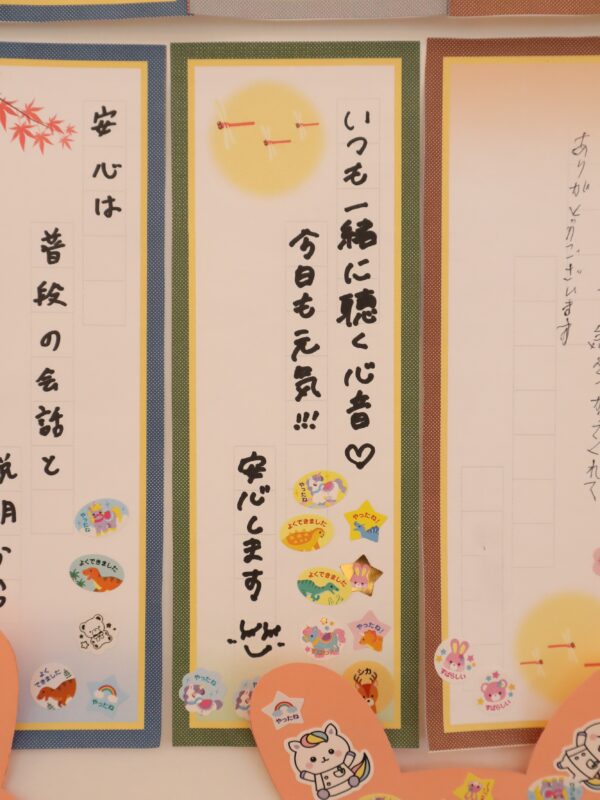 ありがとうございます
いつも一緒に聴く心音♡
今日も元気!!!
安心します
やったね
やったね!
よくできました
よくできました
やったね!
すばらしい
シカ
やったね
やったね
安心は
普段の会話と
やったね
よくできました
よくできました
やったね
すばらしい
すばらしい